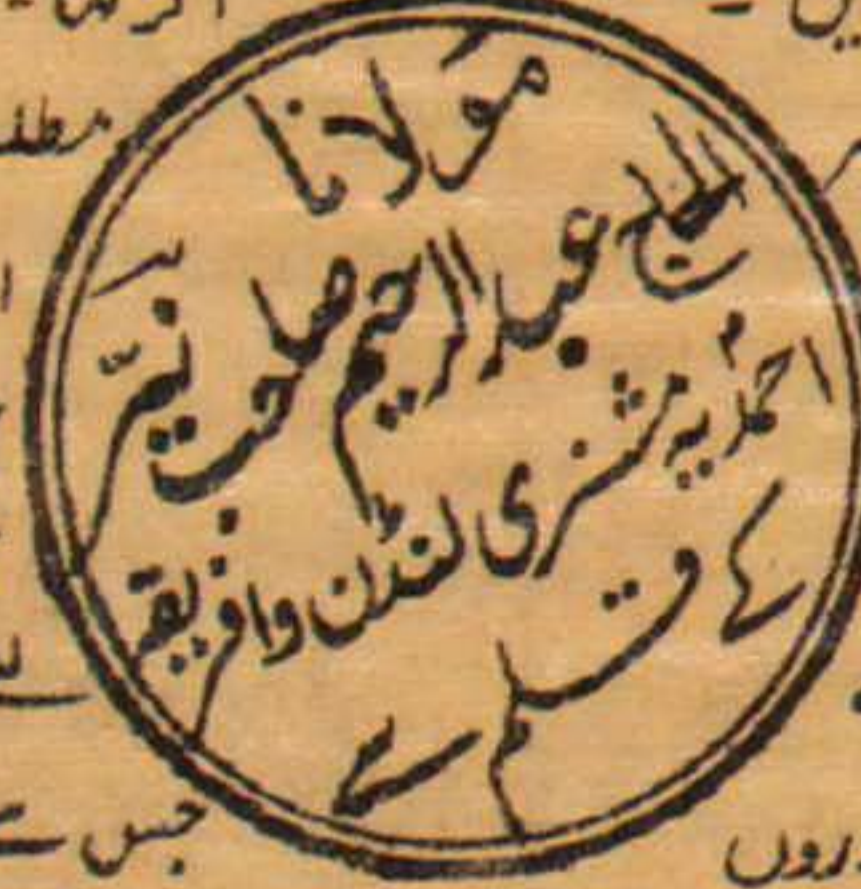 مولانا
الحاج عبدالرحیم صاحب نیّر
احمدیہ مشنری لندن وافریقہ
کے قلم سے
جس سے
روں